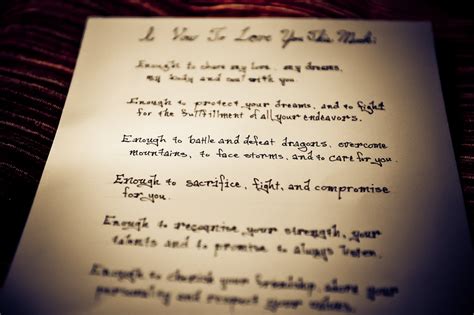 I Vow To Love You This Much:
Enough to share my love, my dreams,
my body and soul with you.
Enough to protect your dreams, and to fight
for the fulfillment of all your endeavors.
Enough to battle and defeat dragons, overcome
mountains, to face storms, and to care for you.
Enough to sacrifice, fight, and compromise
for you.
Enough to recognise your strength, your
talents and to promise to always listen.
Enough to cherish your friendship, share your
personality and respect your values.